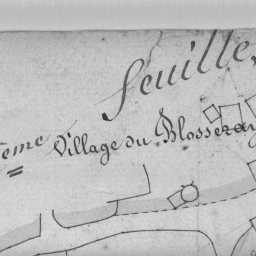 feuille
eme Village du